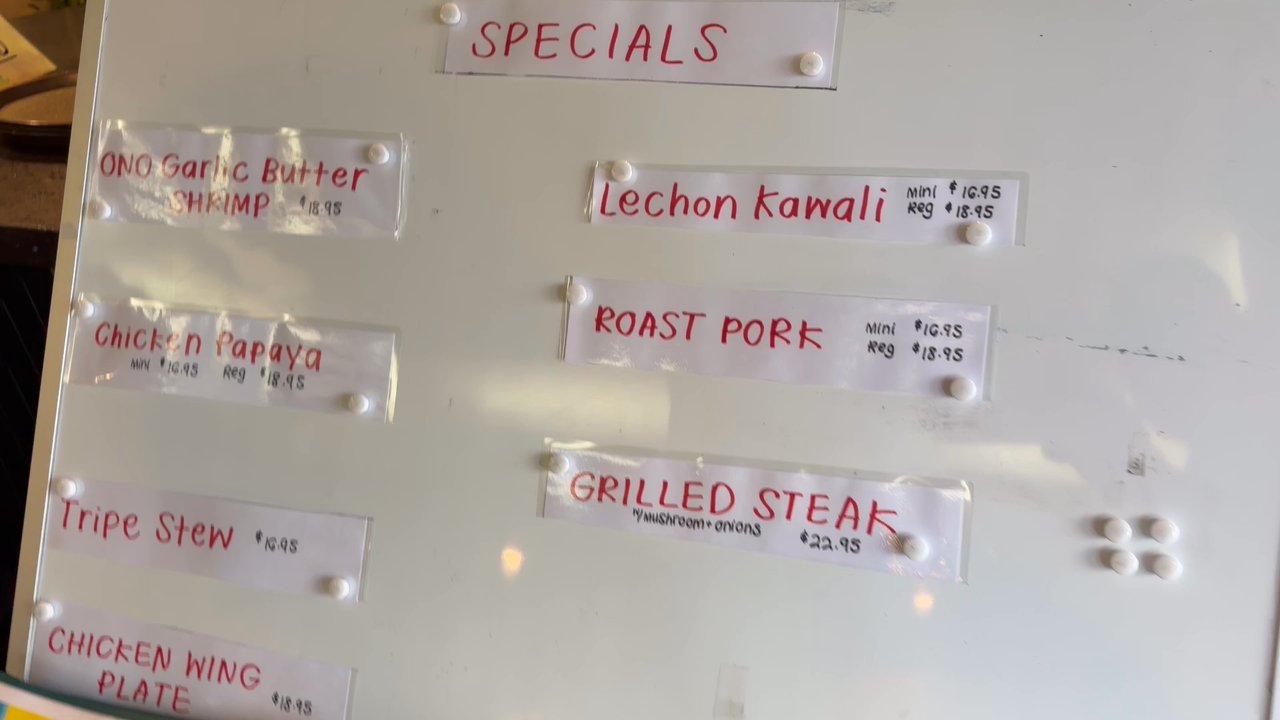 SPECIALS
ONO Garlic Butter
SHRIMP $18.95
Chicken Papaya
Mini $16.95 Reg $18.95
Tripe Stew $16.95
CHICKEN WING
PLATE $18.95
Lechon Kawali Mini $16.95
Reg $18.95
ROAST PORK Mini $16.95
Reg $18.95
GRILLED STEAK
w/Mushroom + onions $22.95